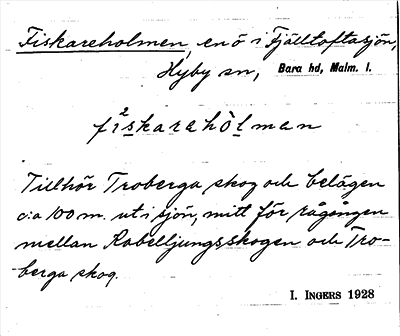 Fiskareholmen, en ö i Fjälltoftasjön,
Hyby sn, Bara hd, Malm. l.
fi²skarehòlman
Tillhör Troberga skog och belägen
c:a 100 m. ut i sjön, mitt för rågången
mellan Rabelljungsskogen och Tro-
berga skog.
I. INGERS 1928